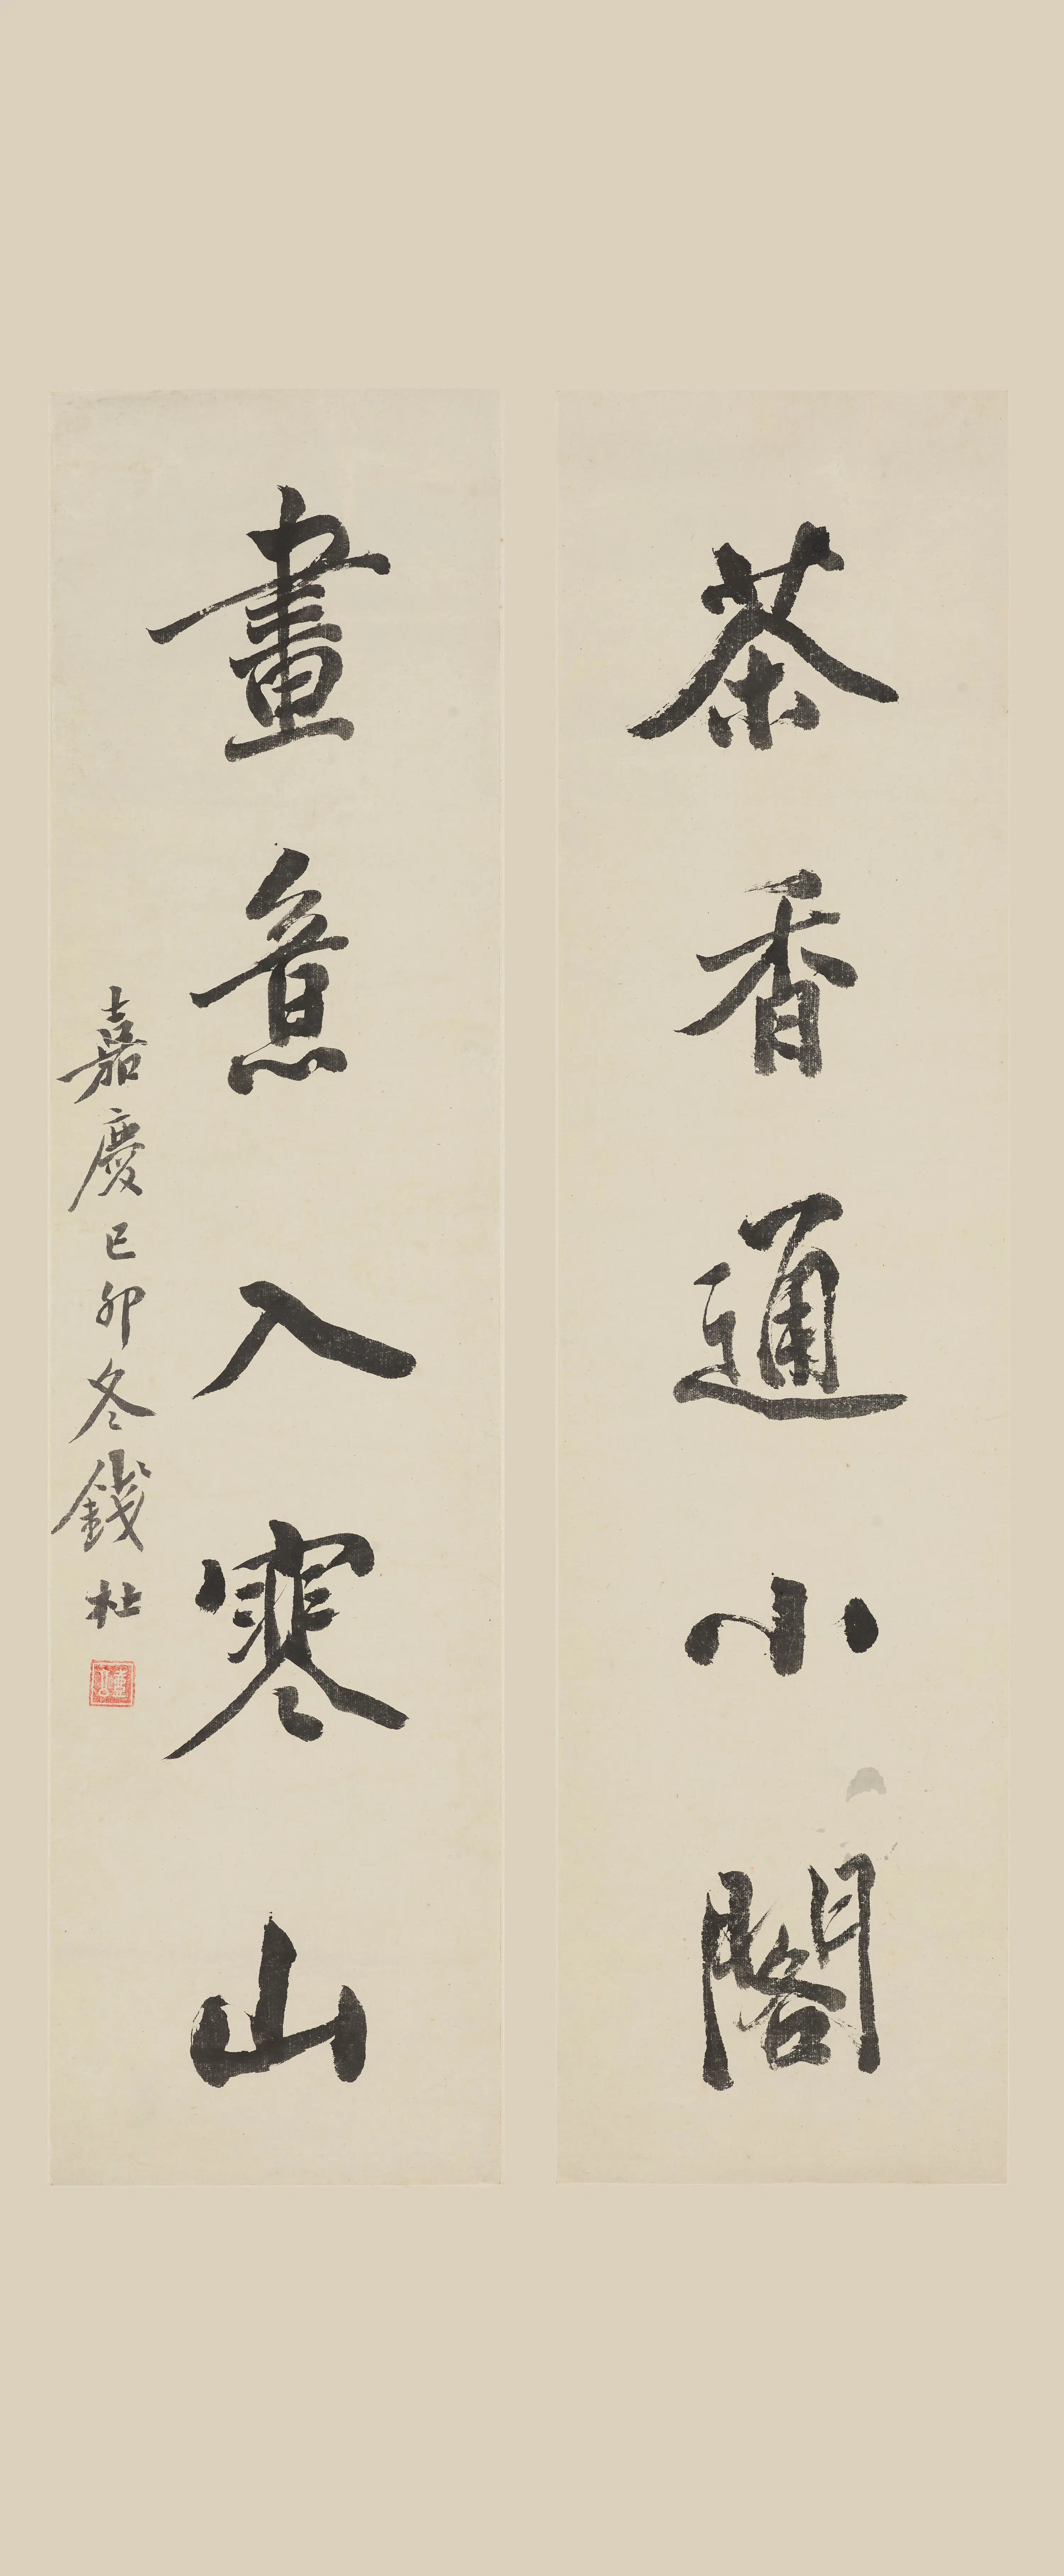 茶香通小閣
畫意入寒山
嘉慶己卯冬錢杜